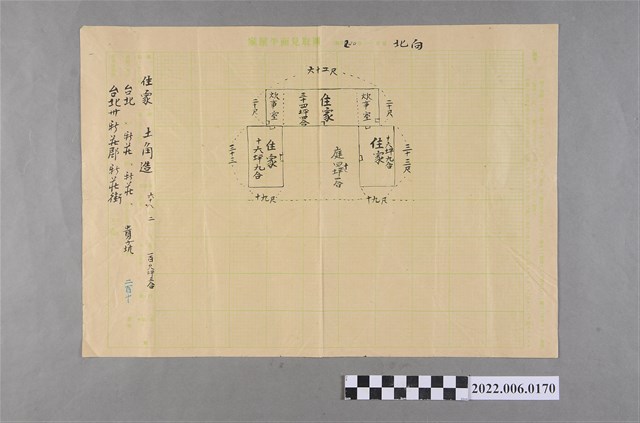 北向
六十二尺
炊事室
住家
三十四坪
炊事室
二十尺
二十尺
住家
十六坪九合
庭
住家
十六坪九合
三十三
三十三尺
十九尺
十九尺
住家 土角造 六六八 二
台北 新莊 新莊
台北州新莊郡新莊街
二百十
2022.006.0170